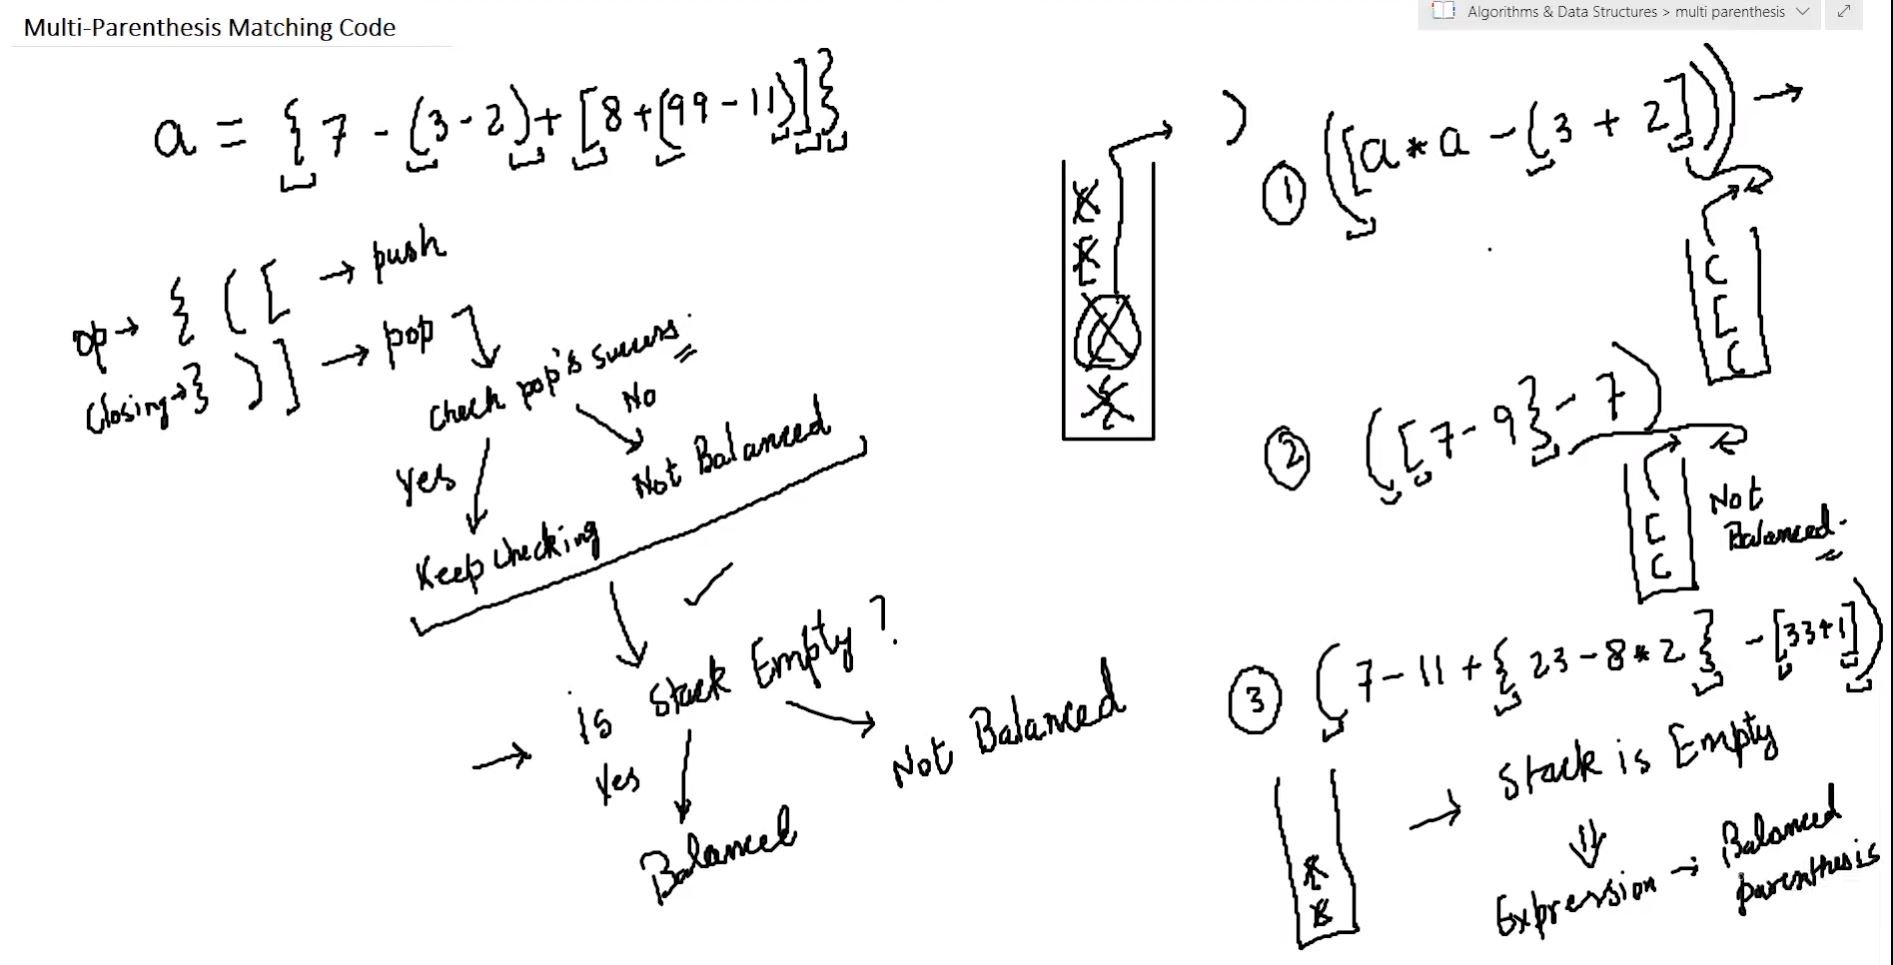 Multi-Parenthesis Matching Code
Algorithms & Data Structures > multi parenthesis
a = { 7 - (3 - 2) + [8 + (99 - 11)]}
op → { ( [ → push
Closing → } ) ] → pop
Check pop's success.
No
Not Balanced
Yes
Keep checking
is Stack Empty ?
Yes
Not Balanced
Balanced
)
① ([a * a - (3 + 2])) →
(
[
(
② ([7 - 9} - 7)
[
(
Not
Balanced.
③ (7 - 11 + { 23 - 8 * 2 } - [33+1])
→ Stack is Empty
⇓
Expression → Balanced
parenthesis